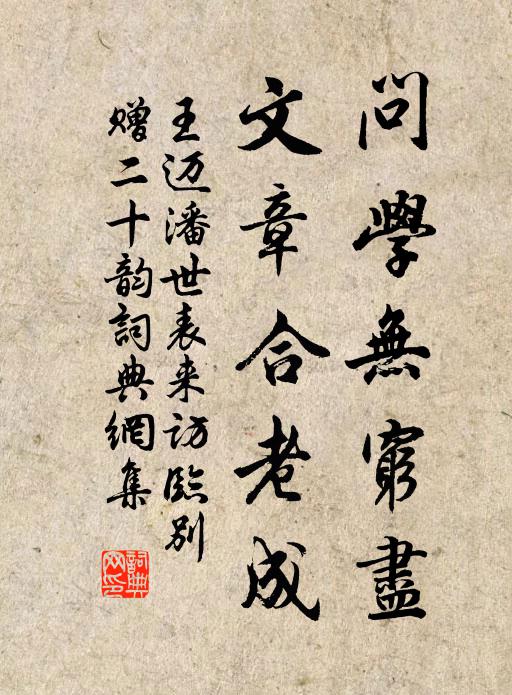 問學無窮盡
文章合老成
王迈潘世表来訪臨别
赠二十韵詞典網集
詞典网印